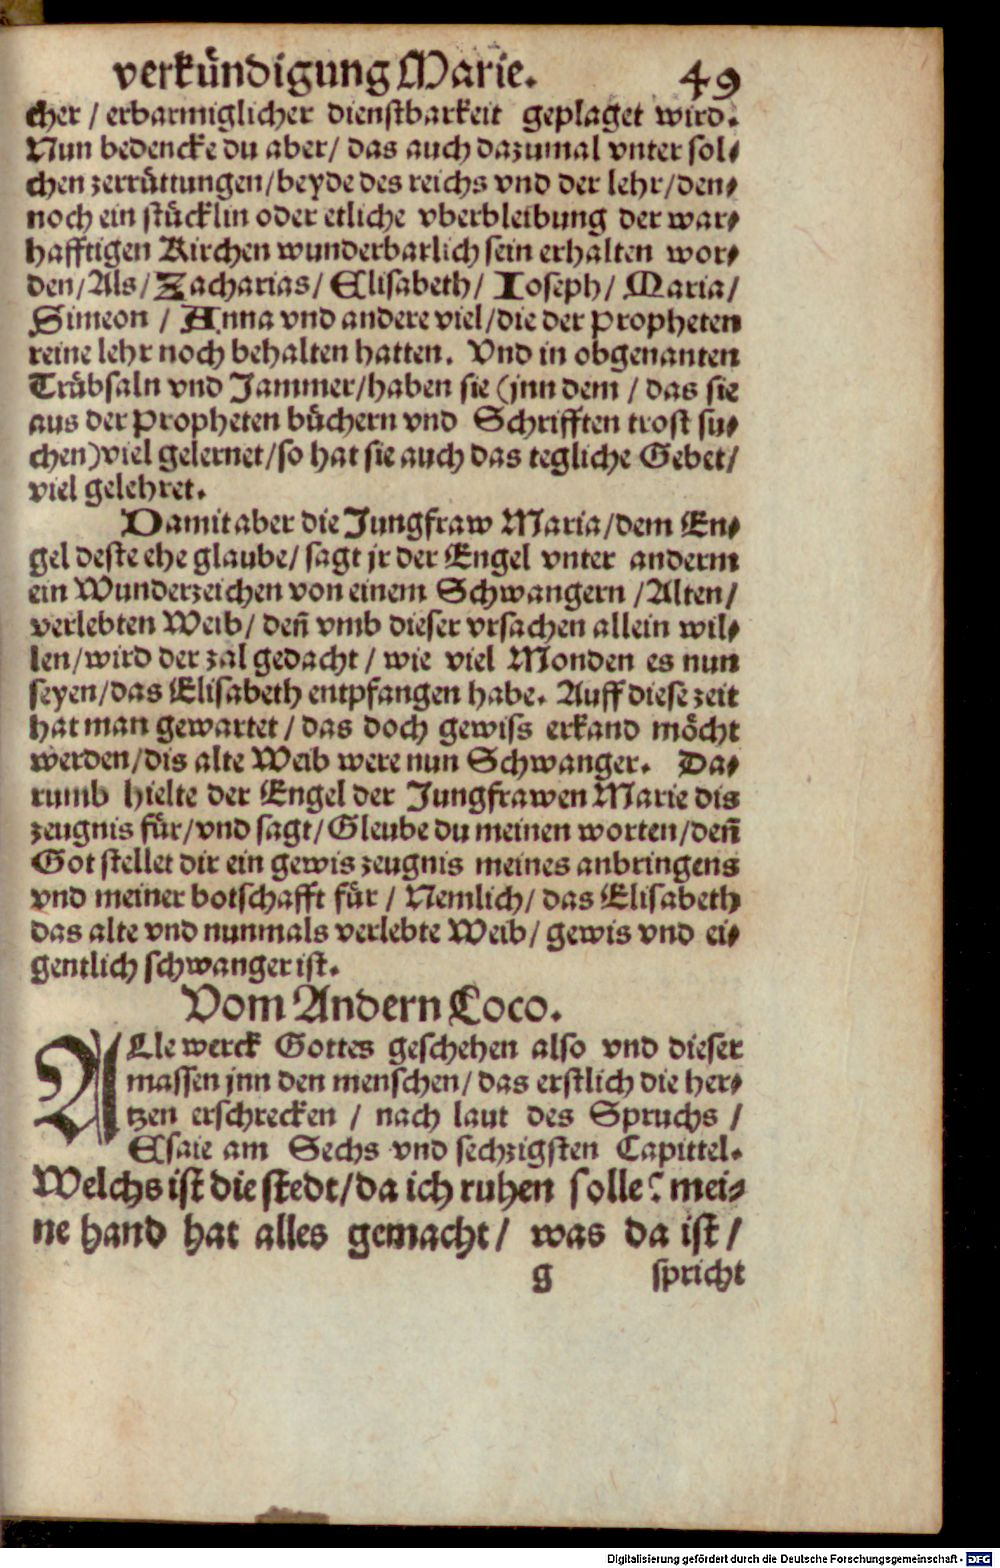 verkündigung Marie. 49
cher / erbarmiglicher dienstbarkeit geplaget wird.
Nun bedencke du aber / das auch dazumal vnter sol⸗
chen zerrüttungen / beyde des reichs vnd der lehr / den⸗
noch ein stücklin oder etliche vberbleibung der war⸗
hafftigen Kirchen wunderbarlich sein erhalten wor⸗
den / Als / Zacharias / Elisabeth / Joseph / Maria /
Simeon / Anna vnd andere viel / die der Propheten
reine lehr noch behalten hatten. Vnd in obgenanten
Trübsaln vnd Jammer / haben sie (jnn dem / das sie
aus der Propheten büchern vnd Schrifften trost su⸗
chen) viel gelernet / so hat sie auch das tegliche Gebet /
viel gelehret.
Damit aber die Jungfraw Maria / dem En⸗
gel deste ehe glaube / sagt jr der Engel vnter anderm
ein Wunderzeichen von einem Schwangern / Alten /
verlebten Weib / deñ vmb dieser vrsachen allein wil⸗
len / wird der zal gedacht / wie viel Monden es nun
seyen / das Elisabeth entpfangen habe. Auff diese zeit
hat man gewartet / das doch gewiss erkand möcht
werden / dis alte Weib were nun Schwanger. Da⸗
rumb hielte der Engel der Jungfrawen Marie dis
zeugnis für / vnd sagt / Gleube du meinen worten / deñ
Got stellet dir ein gewis zeugnis meines anbringens
vnd meiner botschafft für / Nemlich / das Elisabeth
das alte vnd nunmals verlebte Weib / gewis vnd ei⸗
gentlich schwanger ist.
Vom Andern Loco.
ALle werck Gottes geschehen also vnd dieser
massen jnn den menschen / das erstlich die her⸗
tzen erschrecken / nach laut des Spruchs /
Esaie am Sechs vnd sechzigsten Capittel.
Welchs ist die stedt / da ich ruhen solle? mei⸗
ne hand hat alles gemacht / was da ist /
g spricht
Digitalisierung gefördert durch die Deutsche Forschungsgemeinschaft - DFG